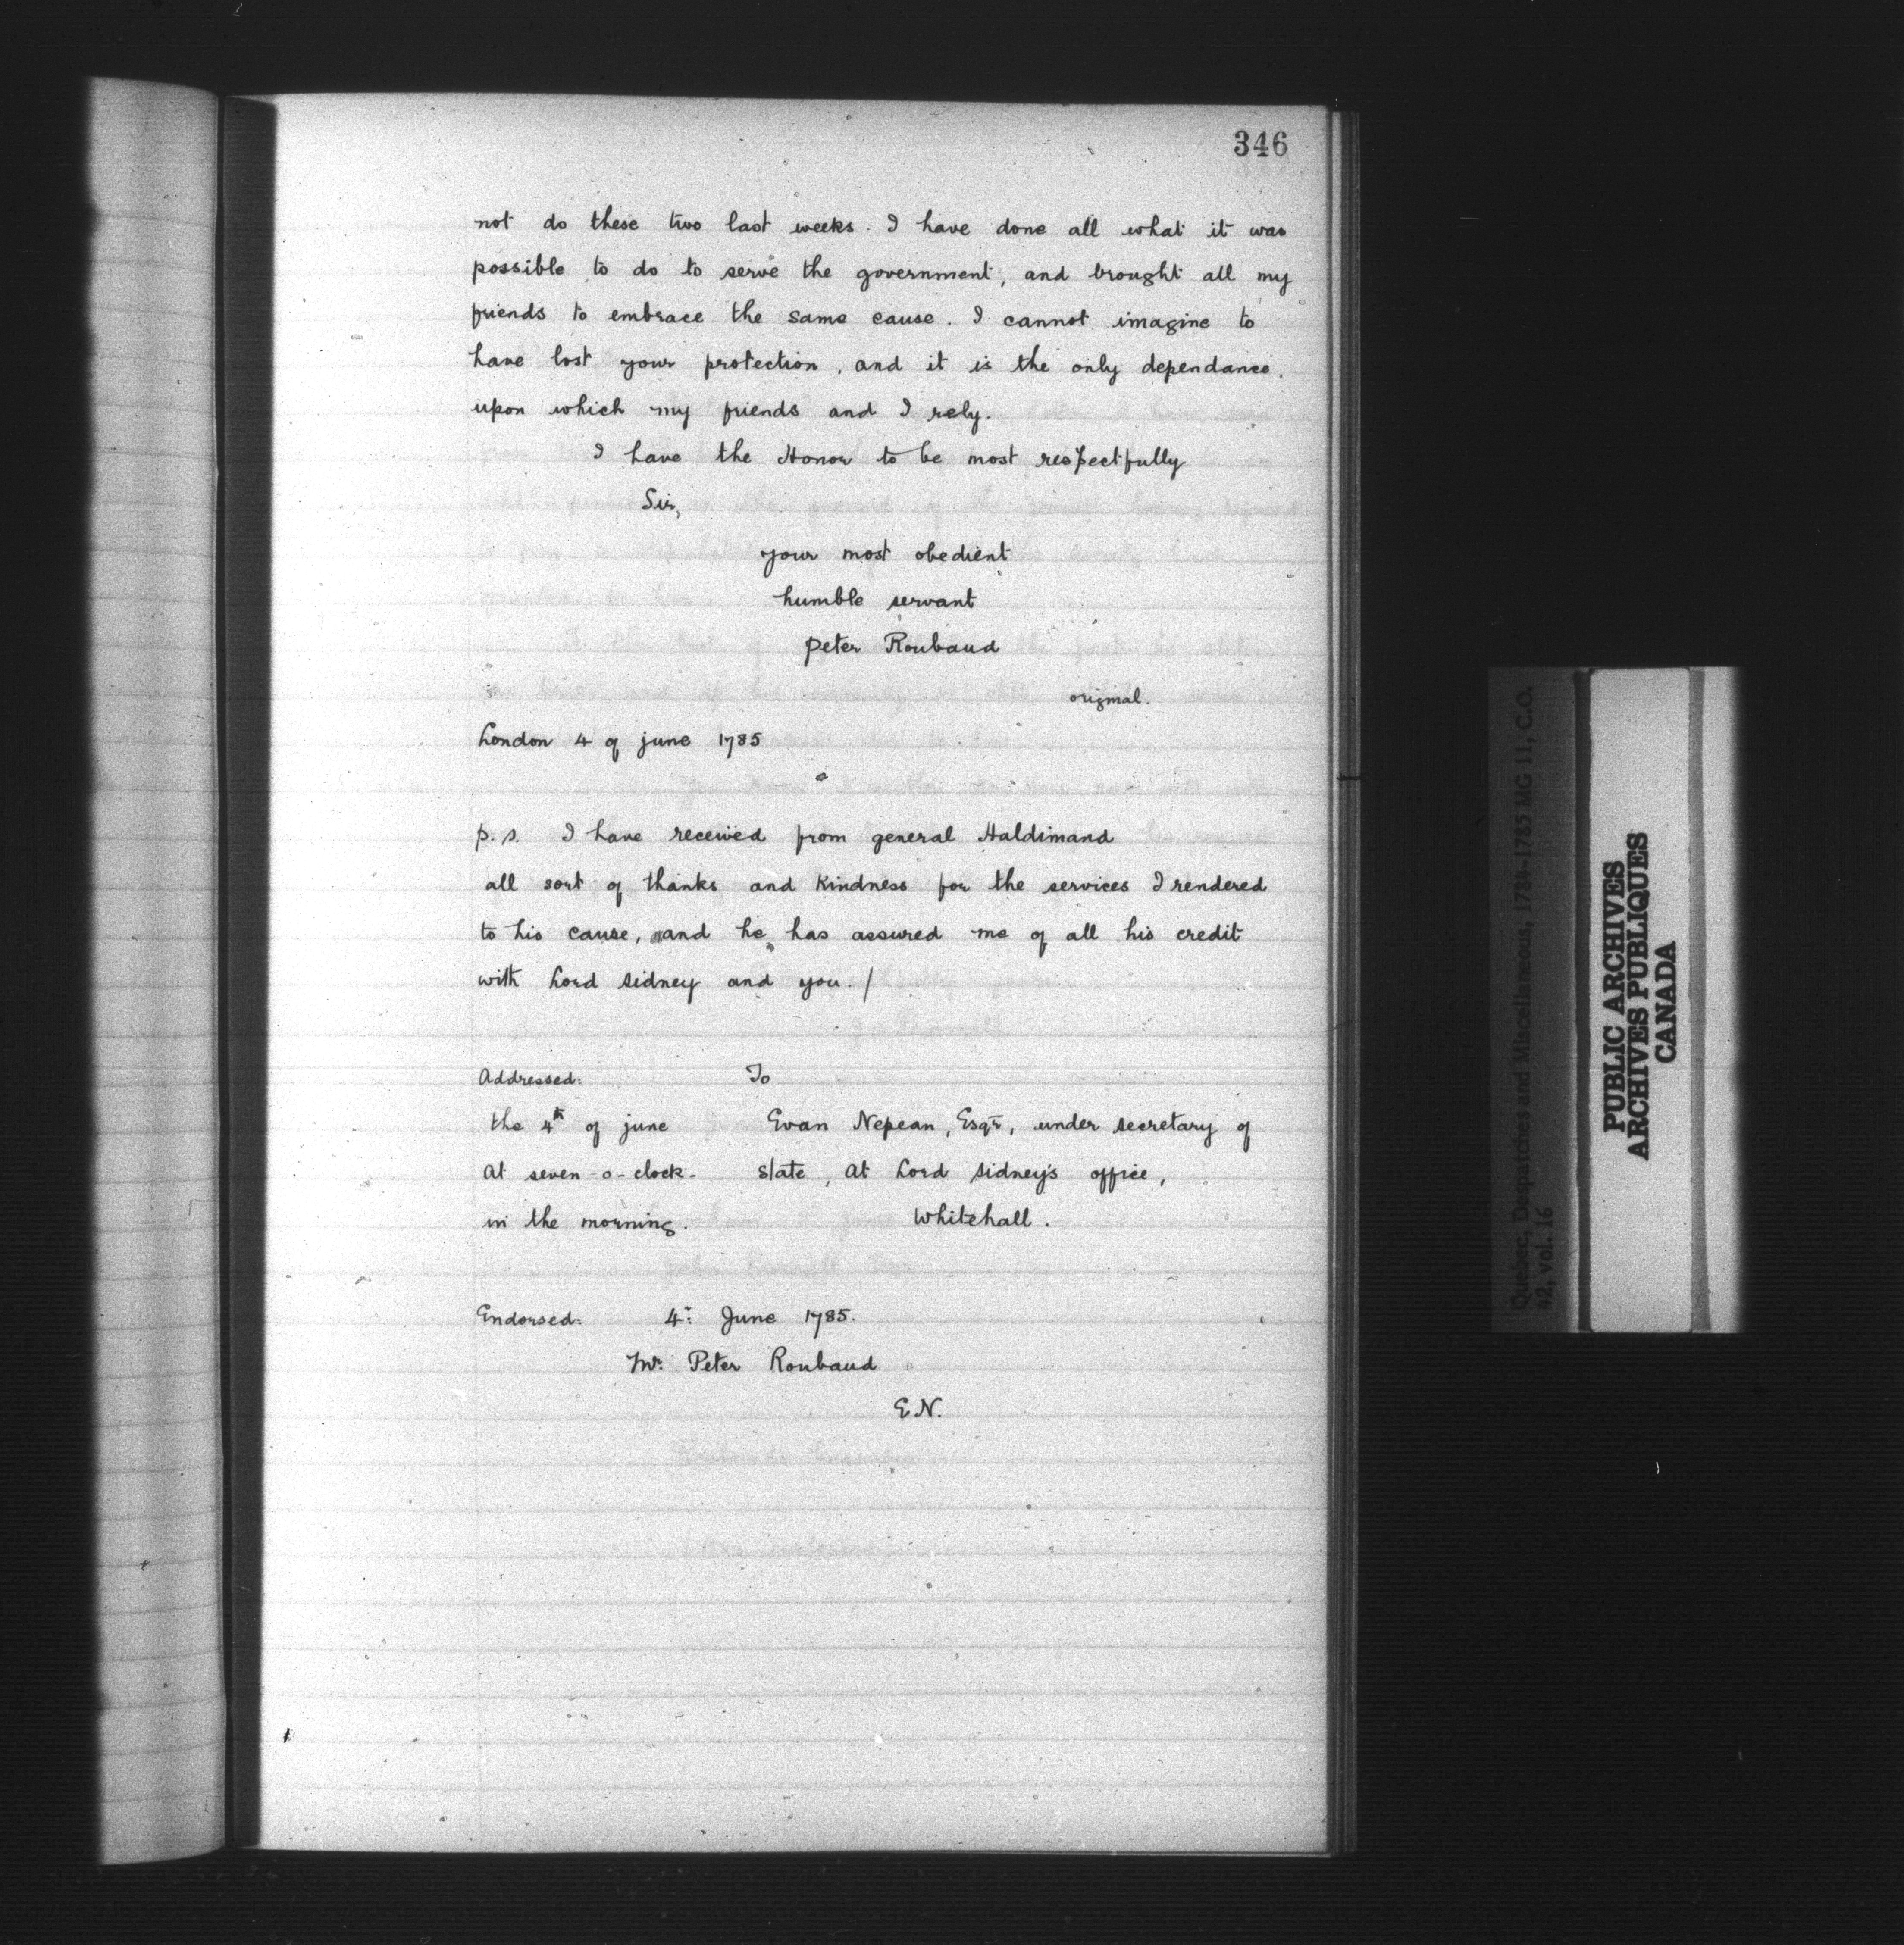 346
not do these two last weeks. I have done all what it was
possible to do to serve the government, and brought all my
friends to embrace the same cause. I cannot imagine to
have lost your protection, and it is the only dependance.
upon which my friends and I rely.
I have the Honor to be most respectfully
Sir,
your most obedient
humble servant
peter Roubaud
original.
London 4 of june 1785
p.s. I have received from general Haldimand
all sort of thanks and kindness for the services I rendered
to his cause, and he has assured me of all his credit
with Lord Sidney and you. /
Addressed: To
the 4th of june Evan Nepean, Esqr, under secretary of
at seven-o-clock- state, at Lord Sidney's office,
in the morning. Whitehall.
Endorsed: 4: June 1785.
Mr: Peter Roubaud
E N.
Quebec, Despatches and Miscellaneous, 1784-1785 MG 11, C.O.
42, vol. 16
PUBLIC ARCHIVES
ARCHIVES PUBLIQUES
CANADA